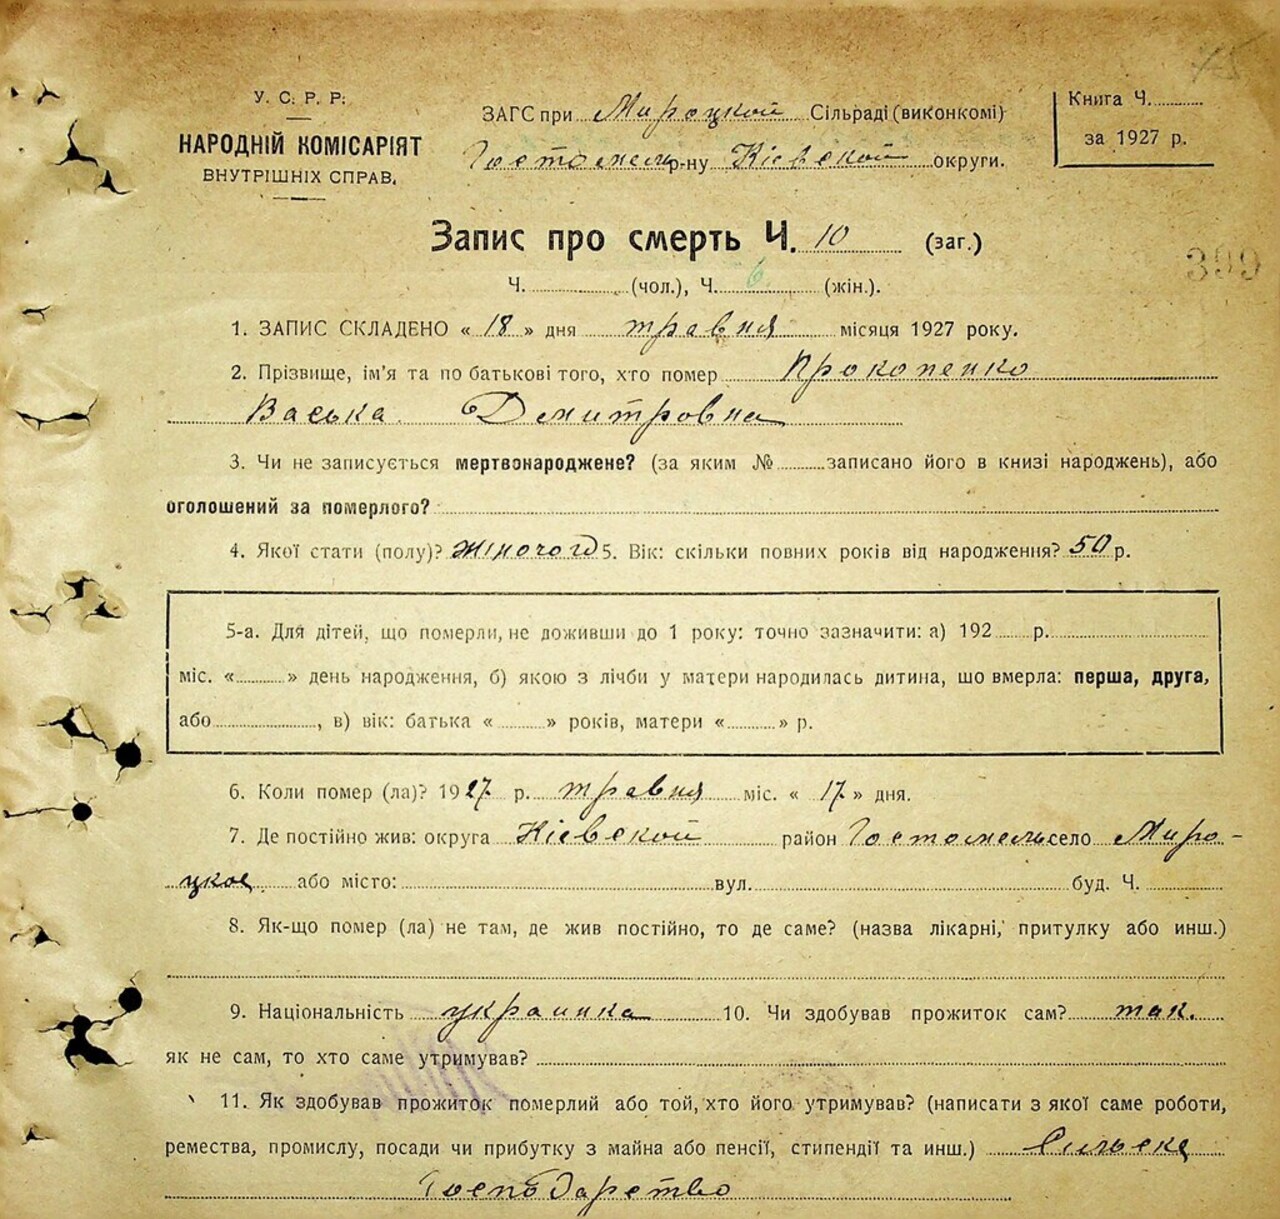 У. С. Р. Р.
НАРОДНІЙ КОМІСАРІЯТ
ВНУТРІШНІХ СПРАВ.
ЗАГС при Мироцкой Сільраді (виконкомі)
Гостомель р-ну Кіевской округи.
Книга Ч.
за 1927 р.
Запис про смерть Ч. 10 (заг.)
399
Ч. (чол.), Ч. 6 (жін.).
1. ЗАПИС СКЛАДЕНО « 18 » дня травня місяця 1927 року.
2. Прізвище, ім'я та по батькові того, хто помер Прокопенко
Васька Дмитровна
3. Чи не записується мертвонароджене? (за яким № записано його в книзі народжень), або
оголошений за померлого?
4. Якої стати (полу)? жіночого 5. Вік: скільки повних років від народження? 50 р.
5-а. Для дітей, що померли, не доживши до 1 року: точно зазначити: а) 192 р.
міс. « » день народження, б) якою з лічби у матери народилась дитина, що вмерла: перша, друга,
або , в) вік: батька « » років, матери « » р.
6. Коли помер (ла)? 1927 р. травня міс. « 17 » дня.
7. Де постійно жив: округа Кіевской район Гостомель село Миро-
цкое або місто: вул. буд. Ч.
8. Як-що помер (ла) не там, де жив постійно, то де саме? (назва лікарні, притулку або инш.)
9. Національність украинка 10. Чи здобував прожиток сам? так.
як не сам, то хто саме утримував?
11. Як здобував прожиток померлий або той, хто його утримував? (написати з якої саме роботи,
ремества, промислу, посади чи прибутку з майна або пенсії, стипендії та инш.) Сильске
Господарство